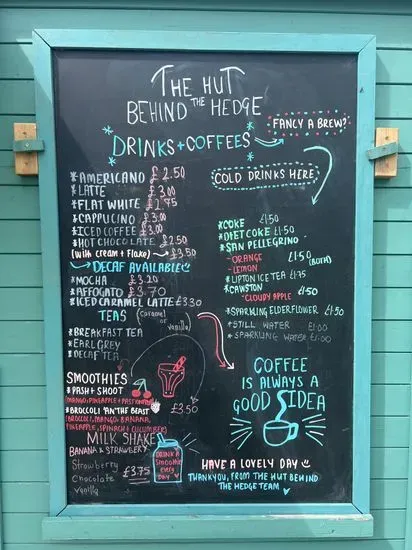 THE HUT
BEHIND THE HEDGE
DRINKS + COFFEES
FANCY A BREW?
* AMERICANO £2.50
* LATTE £3.00
* FLAT WHITE £2.75
* CAPPUCINO £3.00
* ICED COFFEE £3.00
* HOT CHOCOLATE £2.50
(with cream + flake) £3.50
DECAF AVAILABLE
* MOCHA £3.20
* AFFOGATO £3.70
* ICED CARAMEL LATTE £3.30
(caramel or vanilla)
TEAS
* BREAKFAST TEA
* EARL GREY
* DECAF TEA
SMOOTHIES
* PASH + SHOOT
MANGO, PINEAPPLE + PASSIONFRUIT
* BROCCOLI 'AN' THE BEAST
BROCCOLI, MANGO, BANANA,
PINEAPPLE, SPINACH + CUCUMBER
£3.50
MILK SHAKE
BANANA & STRAWBERRY
Strawberry
Chocolate
Vanilla
£3.75
DRINK A
SMOOTHIE
EVERY
DAY
COLD DRINKS HERE
* COKE £1.50
* DIET COKE £1.50
* SAN PELLEGRINO
- ORANGE £1.50
- LEMON (BOTH)
* LIPTON ICE TEA £1.75
* CAWSTON
- CLOUDY APPLE £1.50
* SPARKLING ELDERFLOWER £1.50
* STILL WATER £1.00
* SPARKLING WATER £1.00
COFFEE
IS ALWAYS A
GOOD IDEA
HAVE A LOVELY DAY
THANKYOU, FROM THE HUT BEHIND
THE HEDGE TEAM